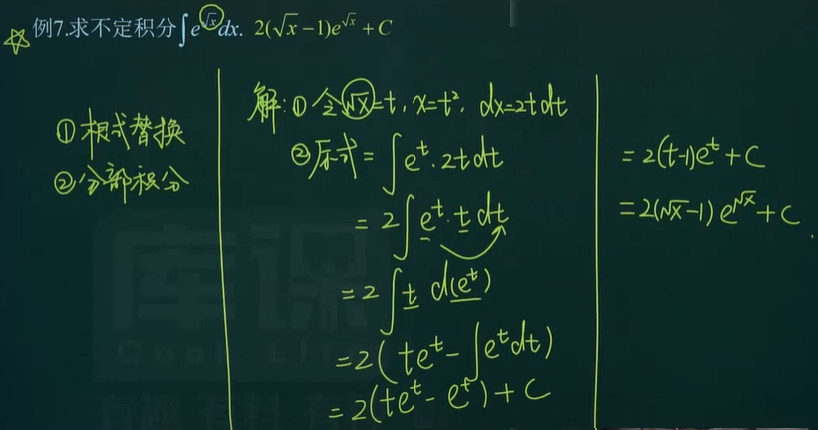 例7.求不定积分∫e^√x dx. 2(√x−1)e^√x + C
①根式替换
②分部积分
解:①令√x=t, x=t², dx=2tdt
②原式=∫e^t·2tdt
=2∫e^t·t dt
=2∫t d(e^t)
=2(te^t-∫e^t dt)
=2(te^t-e^t)+C
=2(t-1)e^t+C
=2(√x-1)e^√x+C
库课
有趣 有料 有